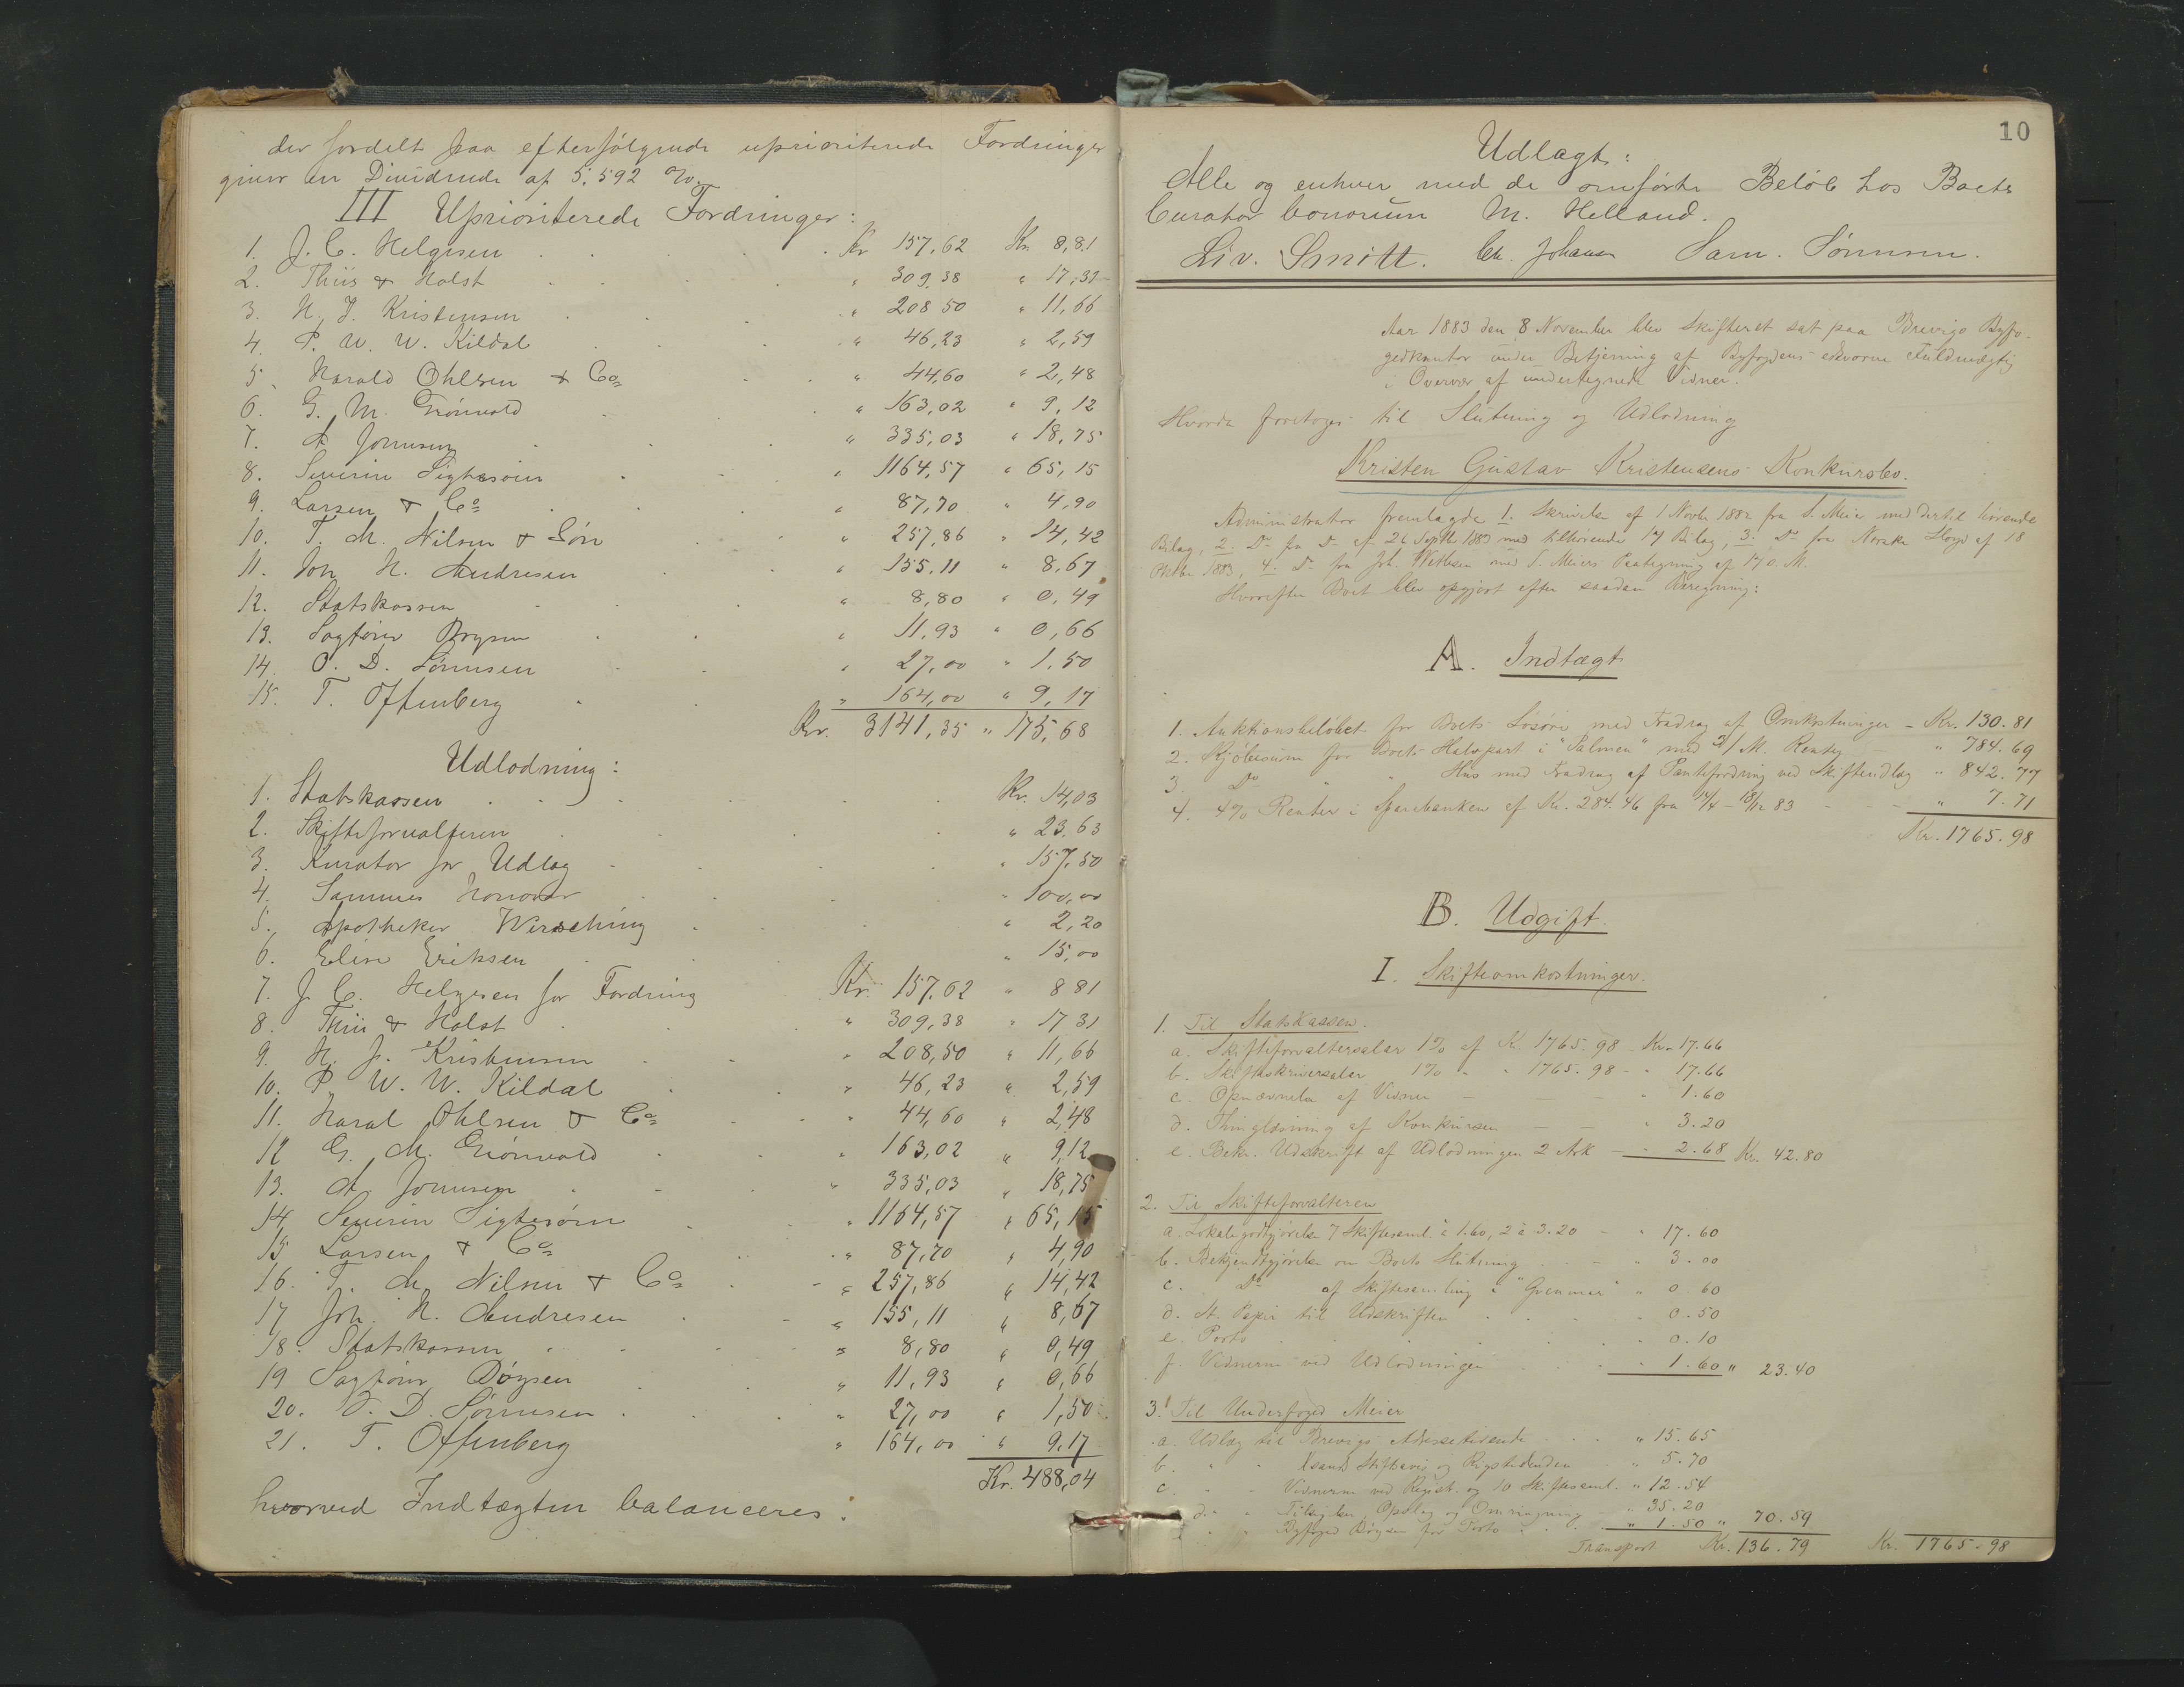 der fordelt paa efterfølgende uprioriterede Fordringer
giver en Dividende af 5,592 %.
III Uprioriterede Fordringer:
1. J. C. Helgesen Kr 157,62 Kr. 8,81
2. Thiis & Holst " 309,38 " 17,31
3. H. J. Kristensen " 208 50 " 11,66
4. P. W. W. Kildal " 46,23 " 2,59
5. Harald Ohlsen & Co " 44,60 " 2,48
6. G. M. Grönvold " 163,02 " 9,12
7. A Jonnsen " 335,03 " 18,75
8. Severin Sigtesörn " 1164,57 " 65,15
9. Larsen & Co " 87,70 " 4,90
10. T. M. Nilsen & Sön " 257,86 " 14,42
11. Joh H. Andresen " 155.11 " 8,67
12. Statskassen " 8,80 " 0,49
13. Sagförer " 11.93 " 0,66
14. O. D. Sörensen " 27,00 " 1,50
15. T. Offenberg " 164,00 " 9,17
Kr. 3141,35 " 175,68
Udlodning:
1. Statskassen Kr. 14,03
2. Skifteforvalteren " 23,63
3. Kurator for Udlæg " 157,50
4. Sammes Honorar " 100,00
5. Apotheker Wirsching " 2,20
6. Elise Eriksen " 15,00
7. J. C. Helgesen for Fordring Kr. 157,62 " 8 81
8. Thiis & Holst " 309,38 " 17 31
9. H. J. Kristensen " 208,50 " 11,66
10. P. W. W. Kildal " 46,23 " 2,59
11. Haral Ohlsen & Co " 44,60 " 2,48
12 G. M. Grönvold " 163,02 " 9,12
13. A. Jonnsen " 335,03 " 18,75
14. Severin Sigtesörn " 1164,57 " 65,15
15 Larsen & Co " 87,70 " 4,90
16. T. M. Nilsen & Co " 257,86 " 14,42
17 Joh. H. Andresen " 155,11 " 8,67
18. Statskassen " 8,80 " 0,49
19 Sagförer Böysen " 11,93 " 0,66
20. O. D. Sörensen " 27,00 " 1,50
21. T. Offenberg " 164,00 " 9,17
Kr. 488,04
hvorved Indtægten balanceres.
10
Udlagt:
Alle og enhver med de omførte Beløb hos Boets
Curator bonorum M. Helland.
Liv. Smitt. Chr. Johansen Sam. Sörensen.
Aar 1883 den 8 November blev Skifteret sat paa Brevigs Byfo-
gedkontor under Betjening af Byfogdens edsvorne Fuldmægtig
i Overvær af undertegnede Vidner.
Hvorda foretoges til Slutning og Udlodning
Kristen Gustav Kristensens Konkursbo.
Administrator fremlagde 1. Skrivelse af 1 Novbr 1882 fra S. Meier med dertil hørende
Bilag, 2. Do fra Do af 26 Septbr 1883 med tilhørende 17 Bilag, 3. Do fra Norske Lloyd af 18
Oktbr 1883, 4. Do fra Joh. Wetlesen med S. Meiers Paategning af 17 d. M.
Hvorefter Boet blev opgjort efter saadan Beregning:
A. Indtægt
1. Auktionsbeløbet for Boets Løsøre med Fradrag af Omkostninger - Kr. 130.81
2. Kjøbesum for Boets Halvpart i "Salonen" med M. Renter " 784.69
3. Do " " Hus med Fradrag af Pantefordring ved Skifteudlæg " 842.77
4. 4% Renter i Sparebanken af Kr. 284.46 fra " 7.71
Kr. 1765.98
B. Udgift.
I. Skifteomkostninger.
1. Til Statskassen.
a. Skifteforvaltersalær 1% af Kr. 1765.98 - Kr. 17.66
b. Skifteskriversalær 1% " " 1765.98 - " 17.66
c. Opnævnelse af Vidner - " 1.60
d. Thinglæsning af Konkursen - " 3.20
e. Bekr. Udskrift af Udlodningen 2 Ark - " 2.68 Kr. 42.80
2. Til Skifteforvalteren
a. Lokalegodtgjørelse 7 Skiftesaml. à 1.60, 2 à 3.20 - " 17.60
b. Bekjendtgjørelse om Boets Slutning " 3.00
c. Do af Skiftesamling i "Grenmar" " 0.60
d. St. Papir til Udskriften " 0.50
e. Porto " 0.10
f. Vidnerne ved Udlodningen " 1.60 " 23.40
3. Til Underfoged Meier
a. Udlæg til Brevigs Adressetidende " 15.65
b. " " Xsands Stiftsavis og Rigstidenden " 5.70
c. " " Vidnerne ved Regist. og 10 Skiftesaml. " 12.54
d. " " Tilsigelse, Opslag og Omringning " 35.20
" " Byfoged Böysen for Porto " 1.50 " 70.59
Transport Kr. 136.79 Kr. 1765.98